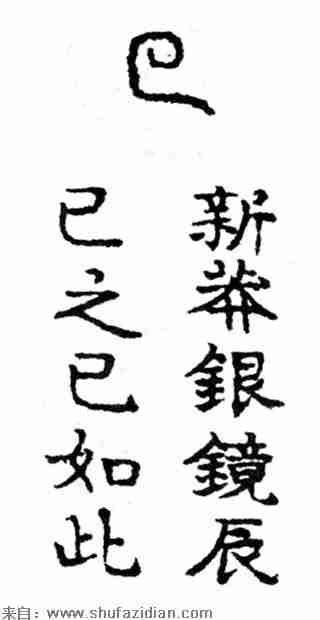 巳
新莽銀鏡辰
巳之巳如此
来自：www.shufazidian.com